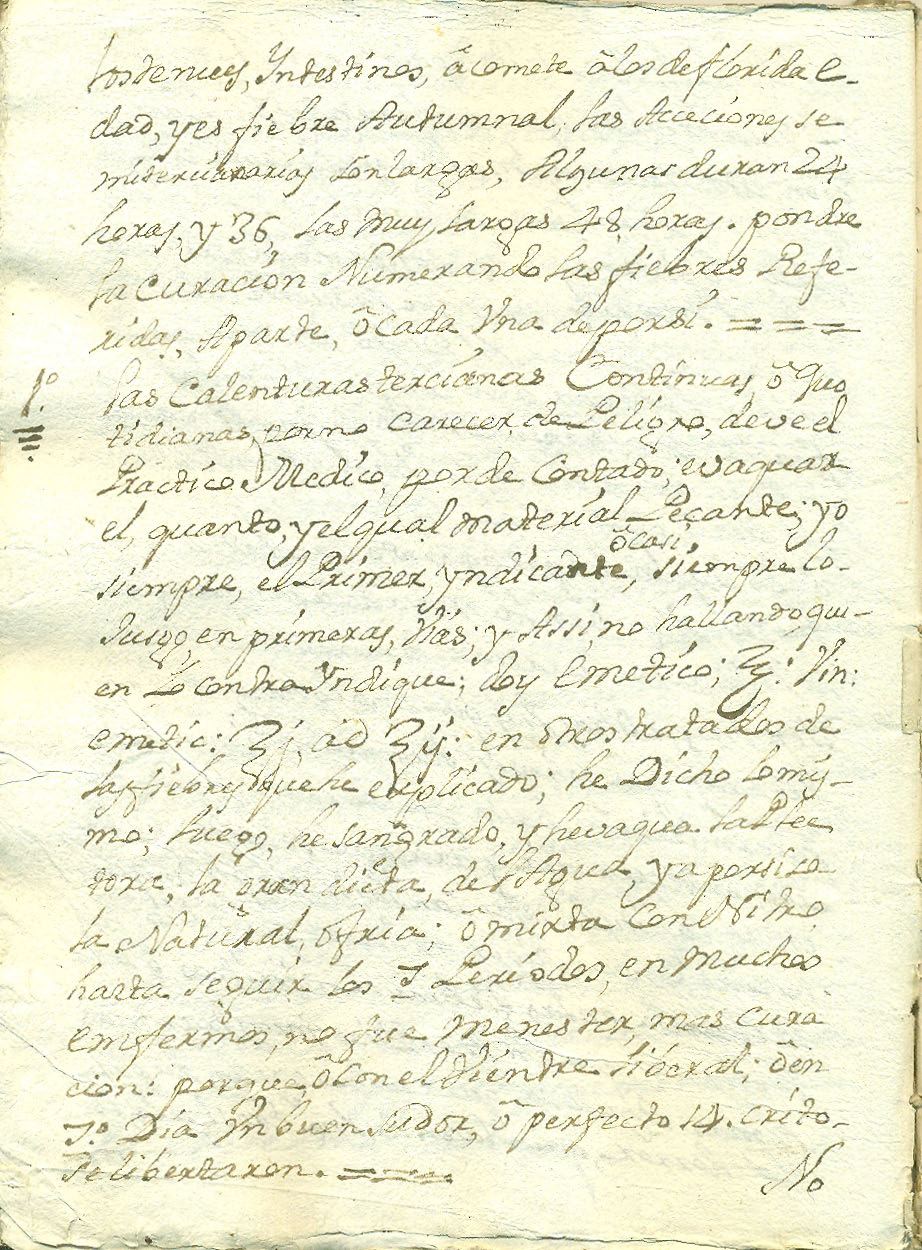 los tenues, Yntestinos, ô comete âlos de florida e-
dad, y es fiebre Autumnal, las Acceciones se
miterciarias son largas, Algunas duran 24
horas, y 36, las muy largas 48 horas. pondre
la curacion Numerando las fiebres Refe-
ridas, Aparte, ô cada Vna de porsi. = = =
1º
las Calenturas tercianas Continuas, ô quo
tidianas, por no carecer, de Peligro, deve el
Practico Medico, por de Contado; evaquar
el, quanto; y el qual material Pecante; yo
ôcasi
siempre, el Primer, yndicante, siempre lo-
Jusgo, en primeras, Vias; y Assi, no hallando, qui-
en Lo contra Yndique; doy Emetico; Vin:
emetic: ʒj. ad ʒij: en otros tratados de
las fiebres que he explicado; he Dicho lo mis-
mo; luego, he sangrado, y hevaqua la Plee
tora, la gran dieta, del Agua, ya por si so
la Natural, ô fria; ô mixta con Nitro,
hasta seguir los 7 Periodos, en muchos
emfermos, no fue menester, mas cura
cion: porque, ôcon el Vientre liberal; ô en
7.º Dia Vn buen sudor, ô perfecto 14. crito-
Se libertaron. = = =
No